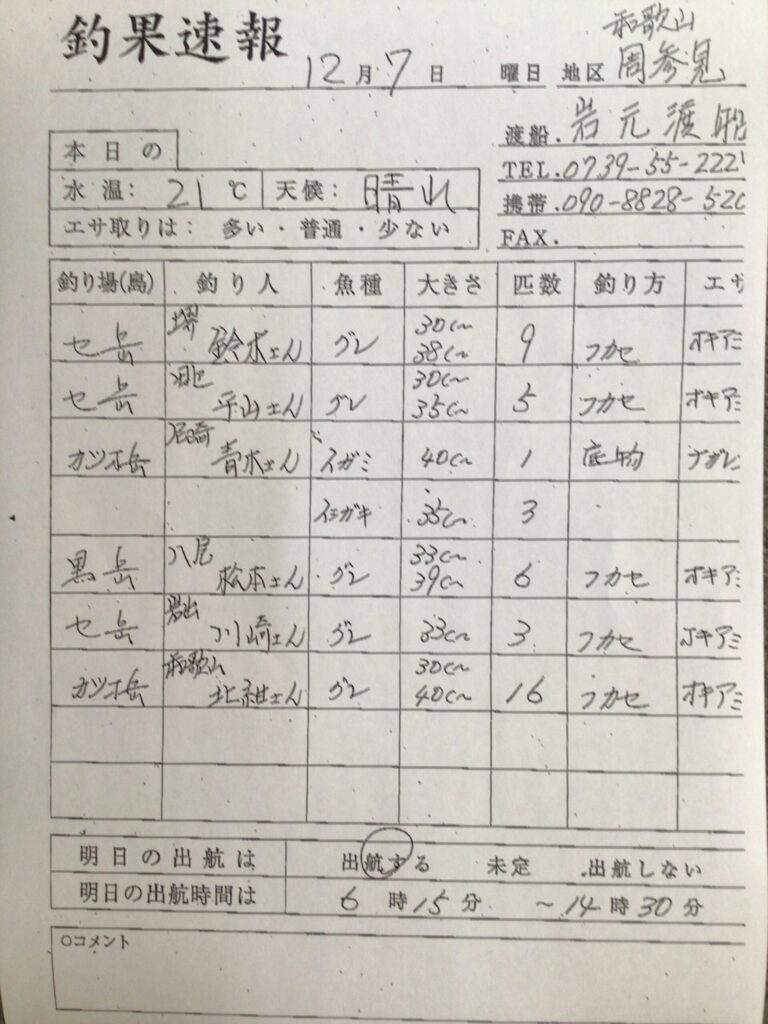 釣果速報
和歌山
12月7日 曜日 地区 周参見
渡船. 岩元渡船
本日の
TEL. 0739-55-222
水温: 21℃ 天候: 晴れ
携帯. 090-8828-520
エサ取りは: 多い・普通・少ない
FAX.
釣り場(島) 釣り人 魚種 大きさ 匹数 釣り方 エサ
堺 30cm
セ岳 鈴木さん グレ 38cm 9 フカセ オキアミ
30cm
セ岳 平山さん グレ 35cm 5 フカセ オキアミ
尼崎
カツオ岳 青木さん イガミ 40cm 1 底物
イシガキ 35cm 3
八尾 33cm
黒岳 松本さん グレ 39cm 6 フカセ オキアミ
セ岳 川崎さん グレ 33cm 3 フカセ オキアミ
和歌山 30cm
カツオ岳 北紺さん グレ 40cm 16 フカセ オキアミ
明日の出航は 出航する 未定 出航しない
明日の出航時間は 6時15分 ~14時30分
○コメント